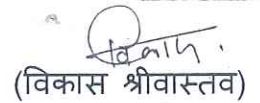 विकास
(विकास श्रीवास्तव)